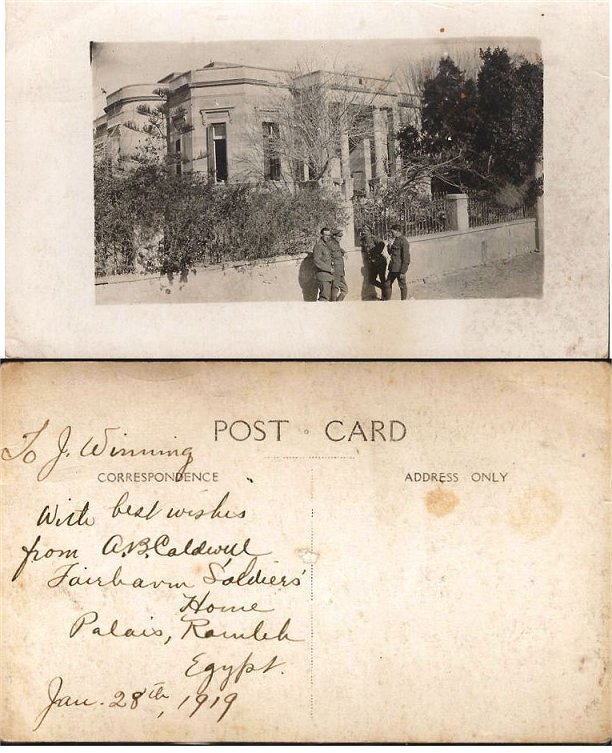 POST CARD
To J. Winning
CORRESPONDENCE
ADDRESS ONLY
With best wishes
from A.B. Caldwell
Fairhaven Soldiers'
Home
Palais, Ramleh
Egypt.
Jan. 28th, 1919